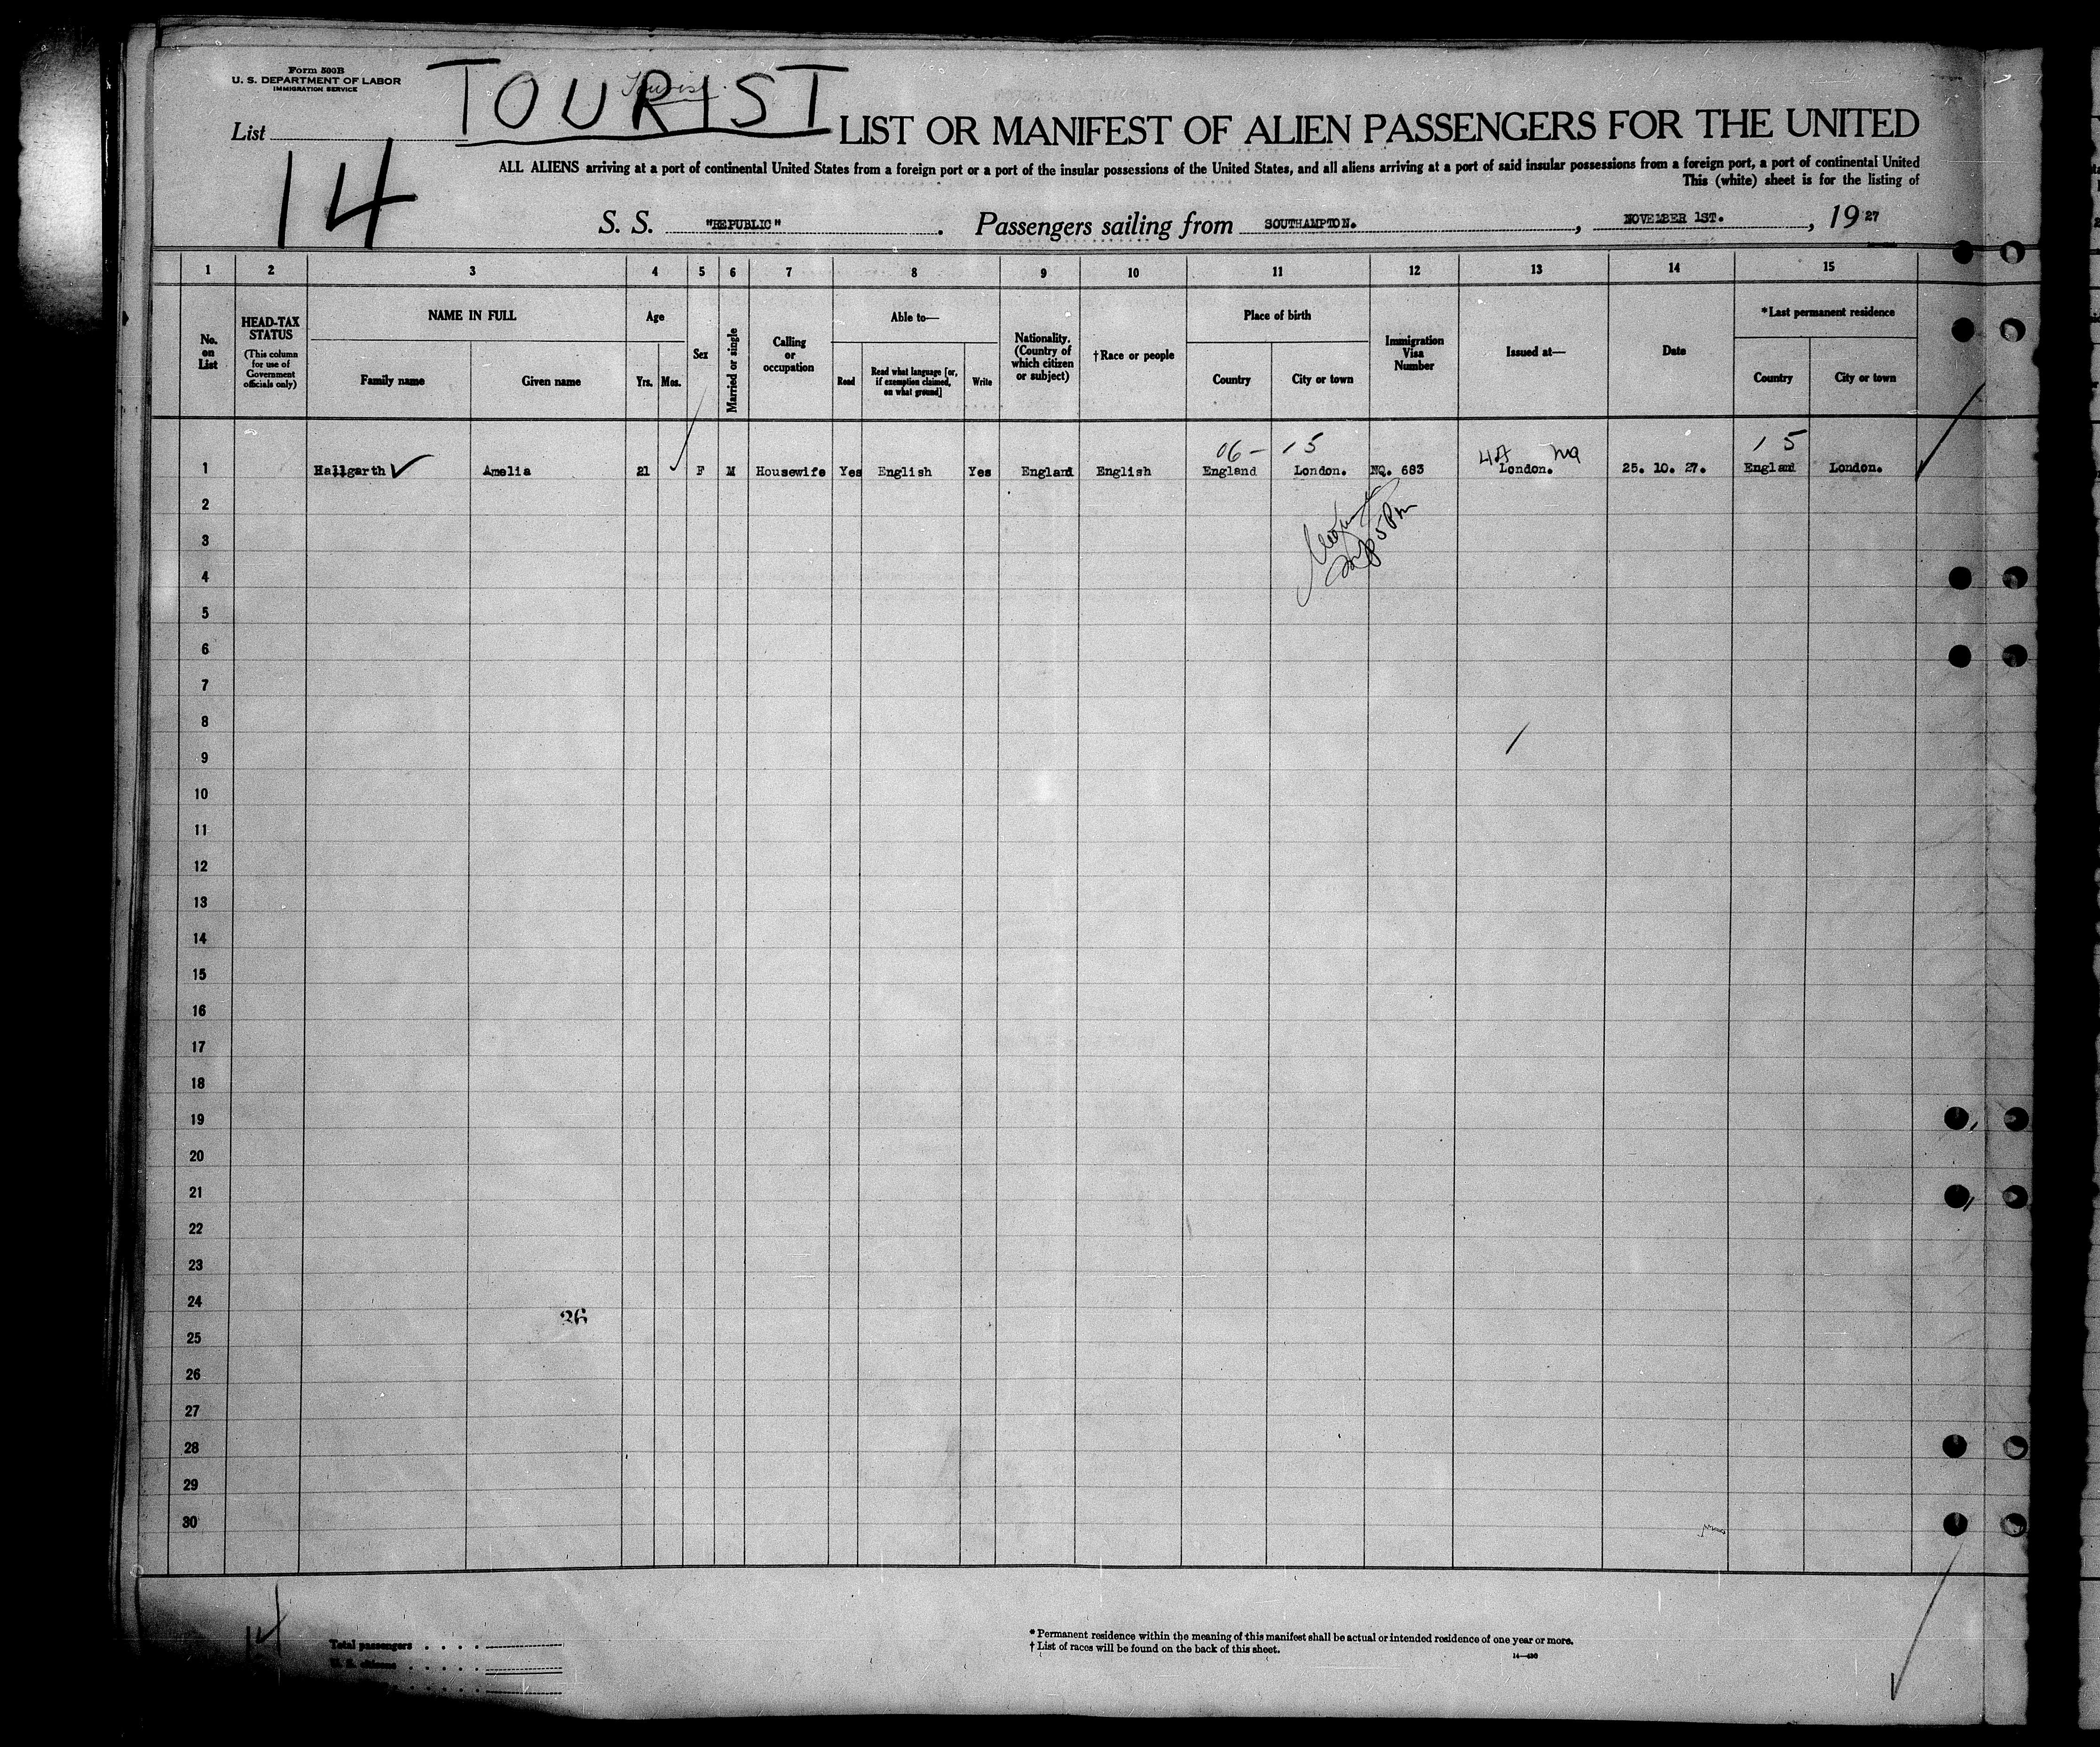 Form 500B
U. S. DEPARTMENT OF LABOR
IMMIGRATION SERVICE
TOURIST
Tourist
List
14
LIST OR MANIFEST OF ALIEN PASSENGERS FOR THE UNITED
ALL ALIENS arriving at a port of continental United States from a foreign port or a port of the insular possessions of the United States, and all aliens arriving at a port of said insular possessions from a foreign port, a port of continental United
This (white) sheet is for the listing of
S. S. "REPUBLIC". Passengers sailing from SOUTHAMPTON. , NOVEMBER 1ST. , 19 27
1 2 3 4 5 6 7 8 9 10 11 12 13 14 15
No. on List
HEAD-TAX STATUS
(This column for use of Government officials only)
NAME IN FULL
Family name Given name
Age
Yrs. Mos.
Sex
Married or single
Calling or occupation
Able to—
Read
Read what language [or, if exemption claimed, on what ground]
Write
Nationality. (Country of which citizen or subject)
†Race or people
Place of birth
Country City or town
Immigration Visa Number
Issued at—
Date
*Last permanent residence
Country City or town
06 - 15 15
1 Hallgarth Amelia 21 F M Housewife Yes English Yes England English England London. NO. 683 London. 25. 10. 27. England London.
2
3
4
5
6
7
8
9
10
11
12
13
14
15
16
17
18
19
20
21
22
23
24
36
25
26
27
28
29
30
14
Total passengers
U. S. citizens
* Permanent residence within the meaning of this manifest shall be actual or intended residence of one year or more.
† List of races will be found on the back of this sheet.